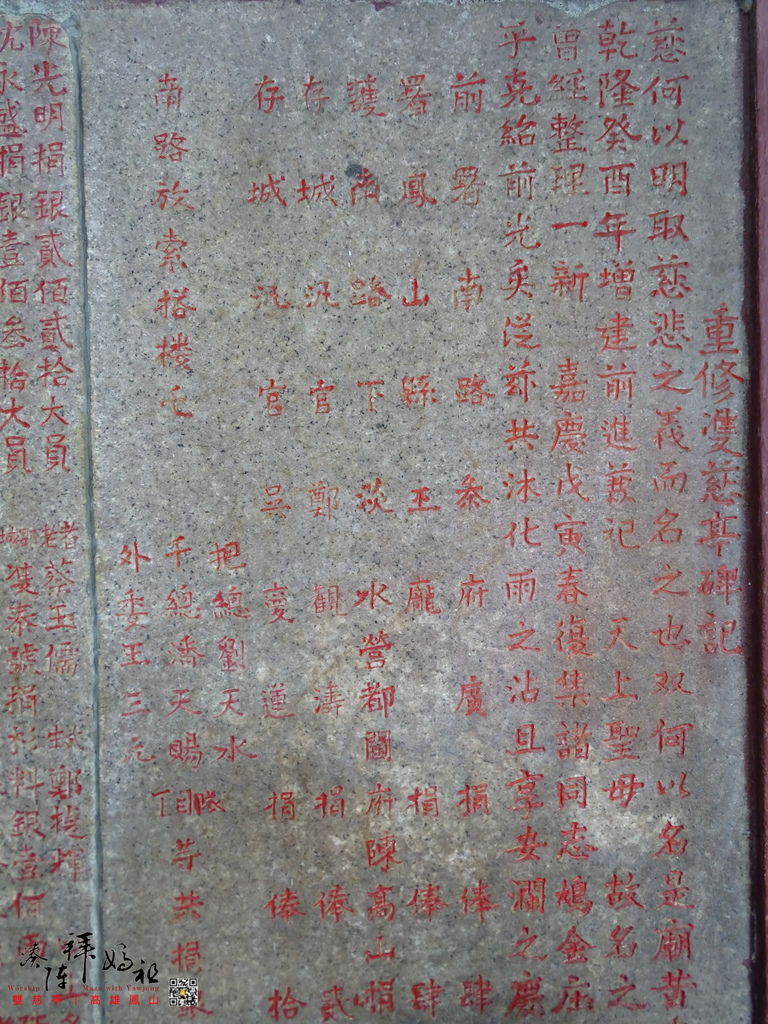 重修双慈亭碑記
慈何以明取慈悲之義而名之也双何以名是廟昔
乾隆癸酉年增建前進兼祀 天上聖母 故名之
曾經整理一新 嘉慶戊寅春復集諸同志鳩金庄
乎堯紹前光奐從茲共沐化雨之沾且享安瀾之慶
前署南路叅府廣捐俸肆
署鳳山縣正龐捐俸肆
護南路下淡水營都閫府陳高山捐
存城汛官鄭觀濤捐俸貳
存城汛官吳變蓮捐俸拾
把總劉天水
南路放索搭楼屯 千總潘天賜 隊目等共捐
外委王三元
陳光明捐銀貳佰貳拾大員 蔡玉儒 鄭提輝
尤永盛捐銀壹佰叁拾大員 雙泰號捐杉料銀壹佰
湊陣拜媽祖
Worship Mazu with Yawjong
雙慈亭│高雄鳳山